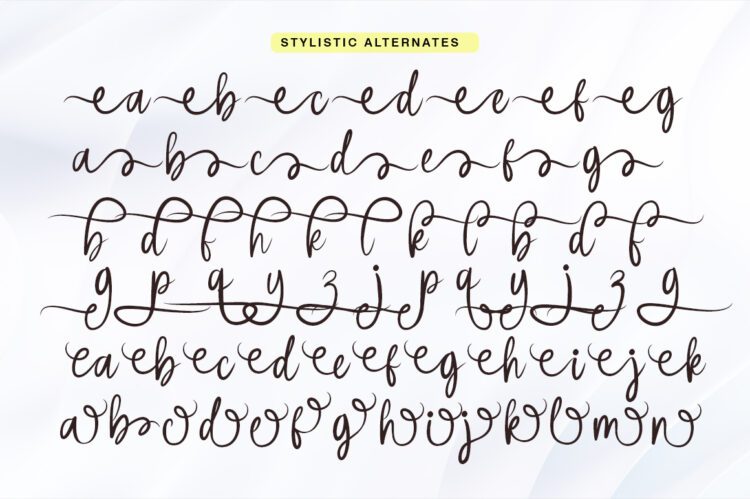 STYLISTIC ALTERNATES
ea eb ec ed ee ef eg
a b c d e f g
b d f h k l k l b d f
g p q y z j p q y j z g
ea eb ec ed ee ef eg eh ei ej ek
a b c d e f g h i j k l m n